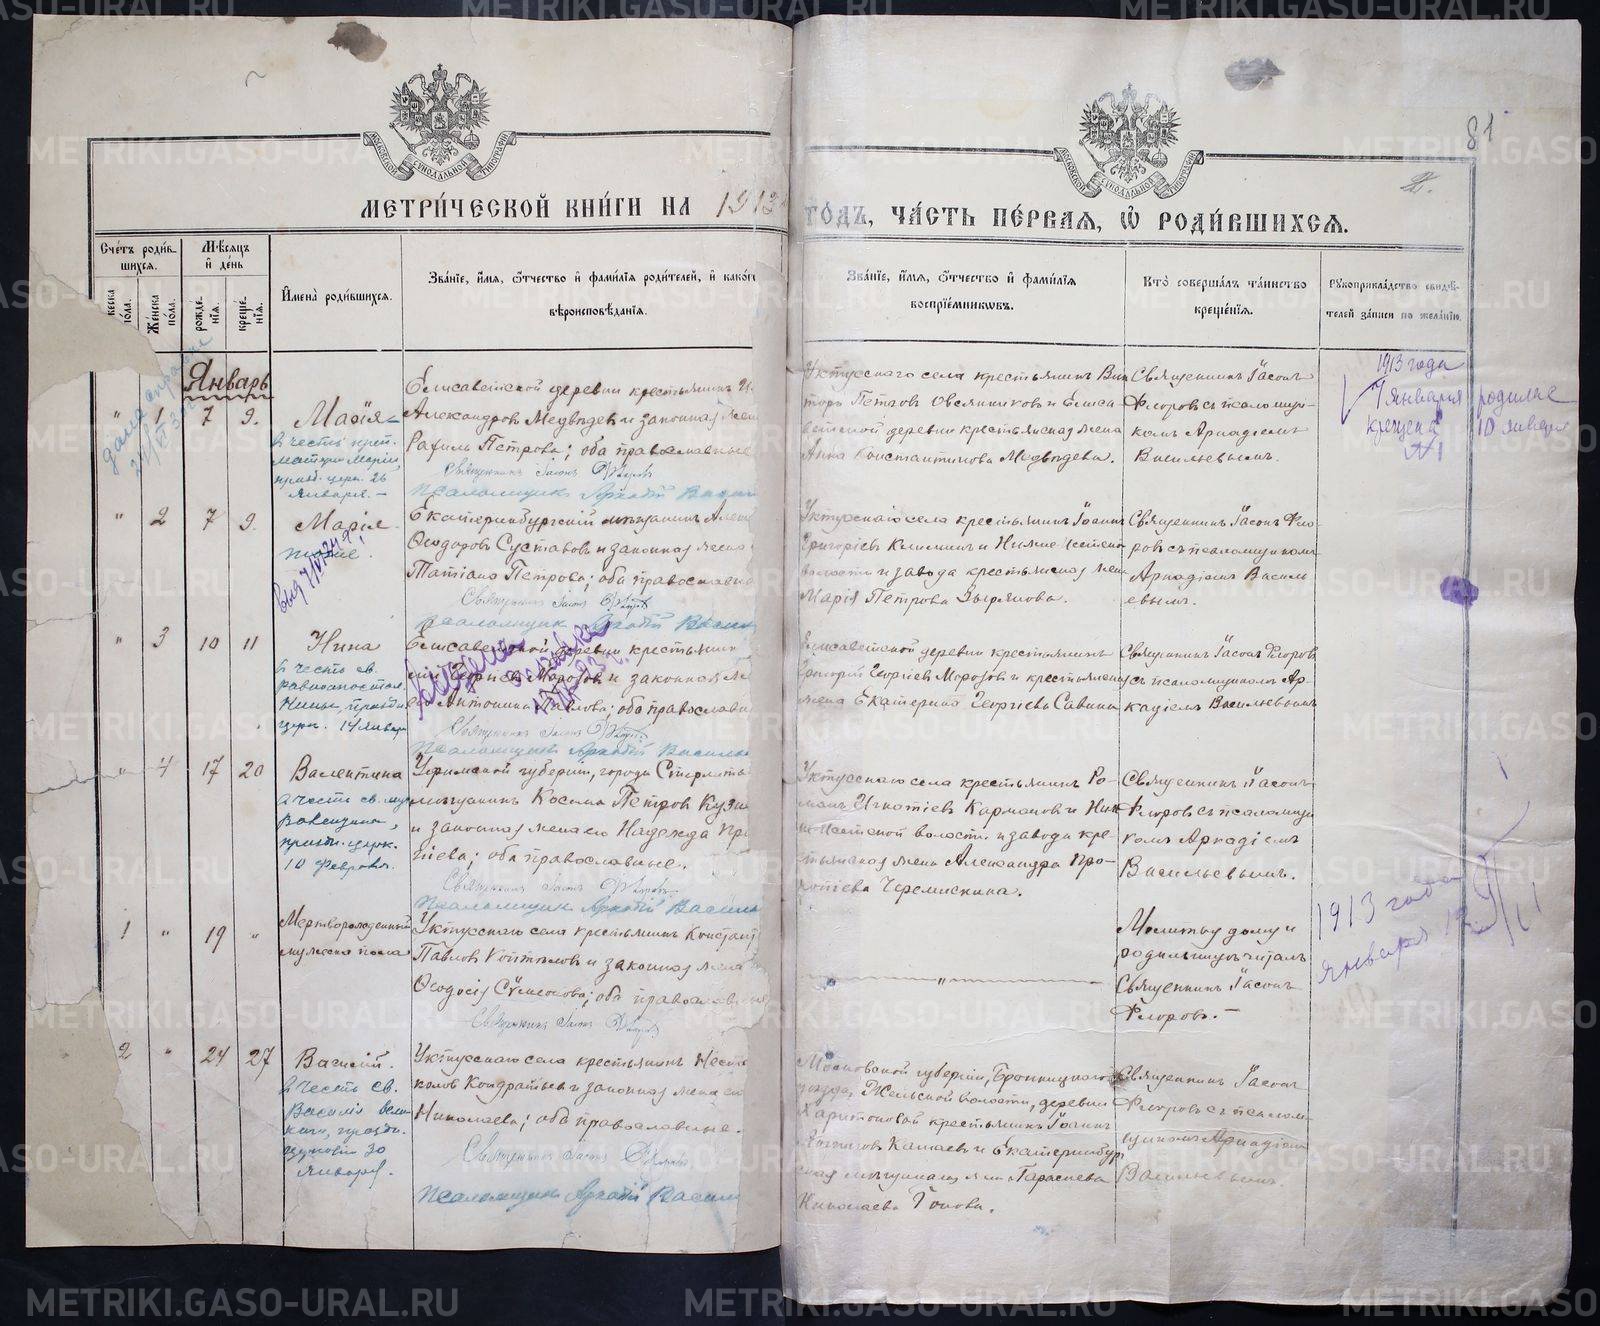 81
МОСКОВСКОЙ СѴНОДАЛЬНОЙ ТИПОГРАФІИ
МОСКОВСКОЙ СѴНОДАЛЬНОЙ ТИПОГРАФІИ
МЕТРИ́ЧЕСКОЙ КНИ́ГИ НА 1913
ГО́ДЪ, ЧА́СТЬ ПЕ́РВАЯ, Ѡ҆ РОДИ́ВШИХСЯ.
Сче́тъ роди́вшихся.
Мѣ́сяцъ и҆ де́нь
Же́нска по́ла.
рожде́нїя.
креще́нїя.
И҆мена̀ роди́вшихся.
Зва́нїе, и҆́мя, ѻ҆́тчество и҆ фами́лїя роди́телей, и҆ како́г
вѣроисповѣ́данїя.
Зва́нїе, и҆́мя, ѻ҆́тчество и҆ фами́лїя
воспрїе́мниковъ.
Кто̀ соверша́лъ та́инство
креще́нїя.
Рукоприкла́дство свидѣ́-
телей за́писи по жела́нїю.
Январь
" 1 7 9. Марія
въ честь преп.
матери Маріи,
празд. церк. 26
января.
Елисаветской деревни крестьянинъ
Александровъ Медвѣдевъ и законная жена
Рахиль Петрова; оба православные
Священникъ Іасонъ Флоровъ
Псаломщикъ Аркадій Василь
Уктусскаго села крестьянинъ Вик
торъ Петровъ Овсянниковъ и Елиса
ветской деревни крестьянская жена
Анна Константинова Медвѣдева.
Священникъ Іасонъ
Флоровъ съ псаломщи-
комъ Аркадіемъ
Васильевымъ.
1913 года
7 января родилась
крещена 10 января
№1
" 2 7 9. Марія
тоже.
Екатеринбургскій мѣщанинъ Алек
Ѳеодоровъ Суставовъ и законная жена
Татіана Петрова; оба православные
Священникъ Іасонъ Флоровъ
Псаломщикъ Аркадій Василь
Уктусскаго села крестьянинъ Іоаннъ
Григоріевъ Климинъ и Нижне-Исетской
волости и завода крестьянская жена
Марія Петрова Зырянова.
Священникъ Іасонъ Фло-
ровъ съ псаломщикомъ
Аркадіемъ Василь
евымъ.
" 3 10 11 Нина
въ честь св.
равноапостол.
Нины, празд.
церк. 14 января
Елисаветской деревни крестьянинъ
Георгіевъ Морозовъ и законная же
Антонина Павлова; оба православн
Священникъ Іасонъ Флоровъ
Псаломщикъ Аркадій Василье
Елисаветской деревни крестьянинъ
Григорій Георгіевъ Морозовъ и крестьянская
жена Екатерина Георгіева Савина
Священникъ Іасонъ Флоровъ
съ псаломщикомъ Ар-
кадіемъ Васильевымъ
" 4 17 20 Валентина
въ честь св. муч.
празд. церк.
10 Февраля.
Уфимской губерніи, города Стерлита
мѣщанинъ Косьма Петровъ Кузн
и законная жена его Надежда
оба православные.
Священникъ Іасонъ Флоровъ
Псаломщикъ Аркадій Василь
Уктусскаго села крестьянинъ Ро-
манъ Игнатіевъ Кармановъ и Ниж
не-Исетской волости и завода кре-
стьянская жена Александра Про-
копіева Черемискина.
Священникъ Іасонъ
Флоровъ съ псаломщи
комъ Аркадіемъ
Васильевымъ.
1 " 19 " Мертворожденный
мужеска пола
Уктусскаго села крестьянинъ Констант
Павловъ и законная жена
Ѳеодосія Сѵмеонова; оба православные
Священникъ Іасонъ Флоровъ
"
Молитву дому и
родильницѣ читалъ
Священникъ Іасонъ
Флоровъ.
1913 года
января 19
2 " 24 27 Василій.
въ честь св.
Василія Вели
каго, празд.
церковію 30
января.
Уктусскаго села крестьянинъ
Кондратьевъ и законная жена его
Николаева; оба православные.
Священникъ Іасонъ Флоровъ
Псаломщикъ Аркадій Василь
Московской губерніи, Бронницкаго
уѣзда, волости, деревни
Харитоновой крестьянинъ Іоаннъ
Катаевъ и Екатеринбург
ская мѣщанская жена
Николаева Попова.
Священникъ Іасонъ
Флоровъ съ псалом
щикомъ Аркадіемъ
Васильевымъ.
METRIKI.GASO-URAL.RU